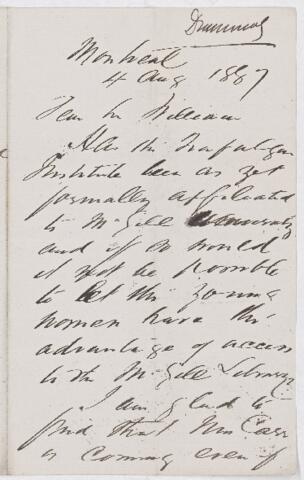 Drummond
Montreal
4 Aug 1887
Dear Sir William
Has the Trafalgar
Institute been as yet
formally affiliated
to McGill University
and if so would
it not be possible
to let the young
women have the
advantage of access
to the McGill Library
I am glad to
find that Mrs
is coming even if